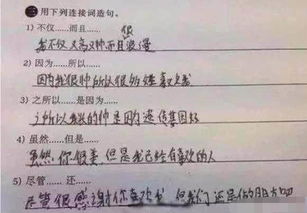 二 用下列连接词造句。
1) 不仅……而且……
很
我不仅又高又帅而且很浪漫
2) 因为……所以……
因为我很帅所以很多妹喜欢我
3) 之所以……是因为……
之所以我长的帅是因为遗传基因好
4) 虽然……但是……
虽然你很美但是我已经有喜欢的人
5) 尽管……还……
尽管很感谢你喜欢我 但我们还是做朋友吧